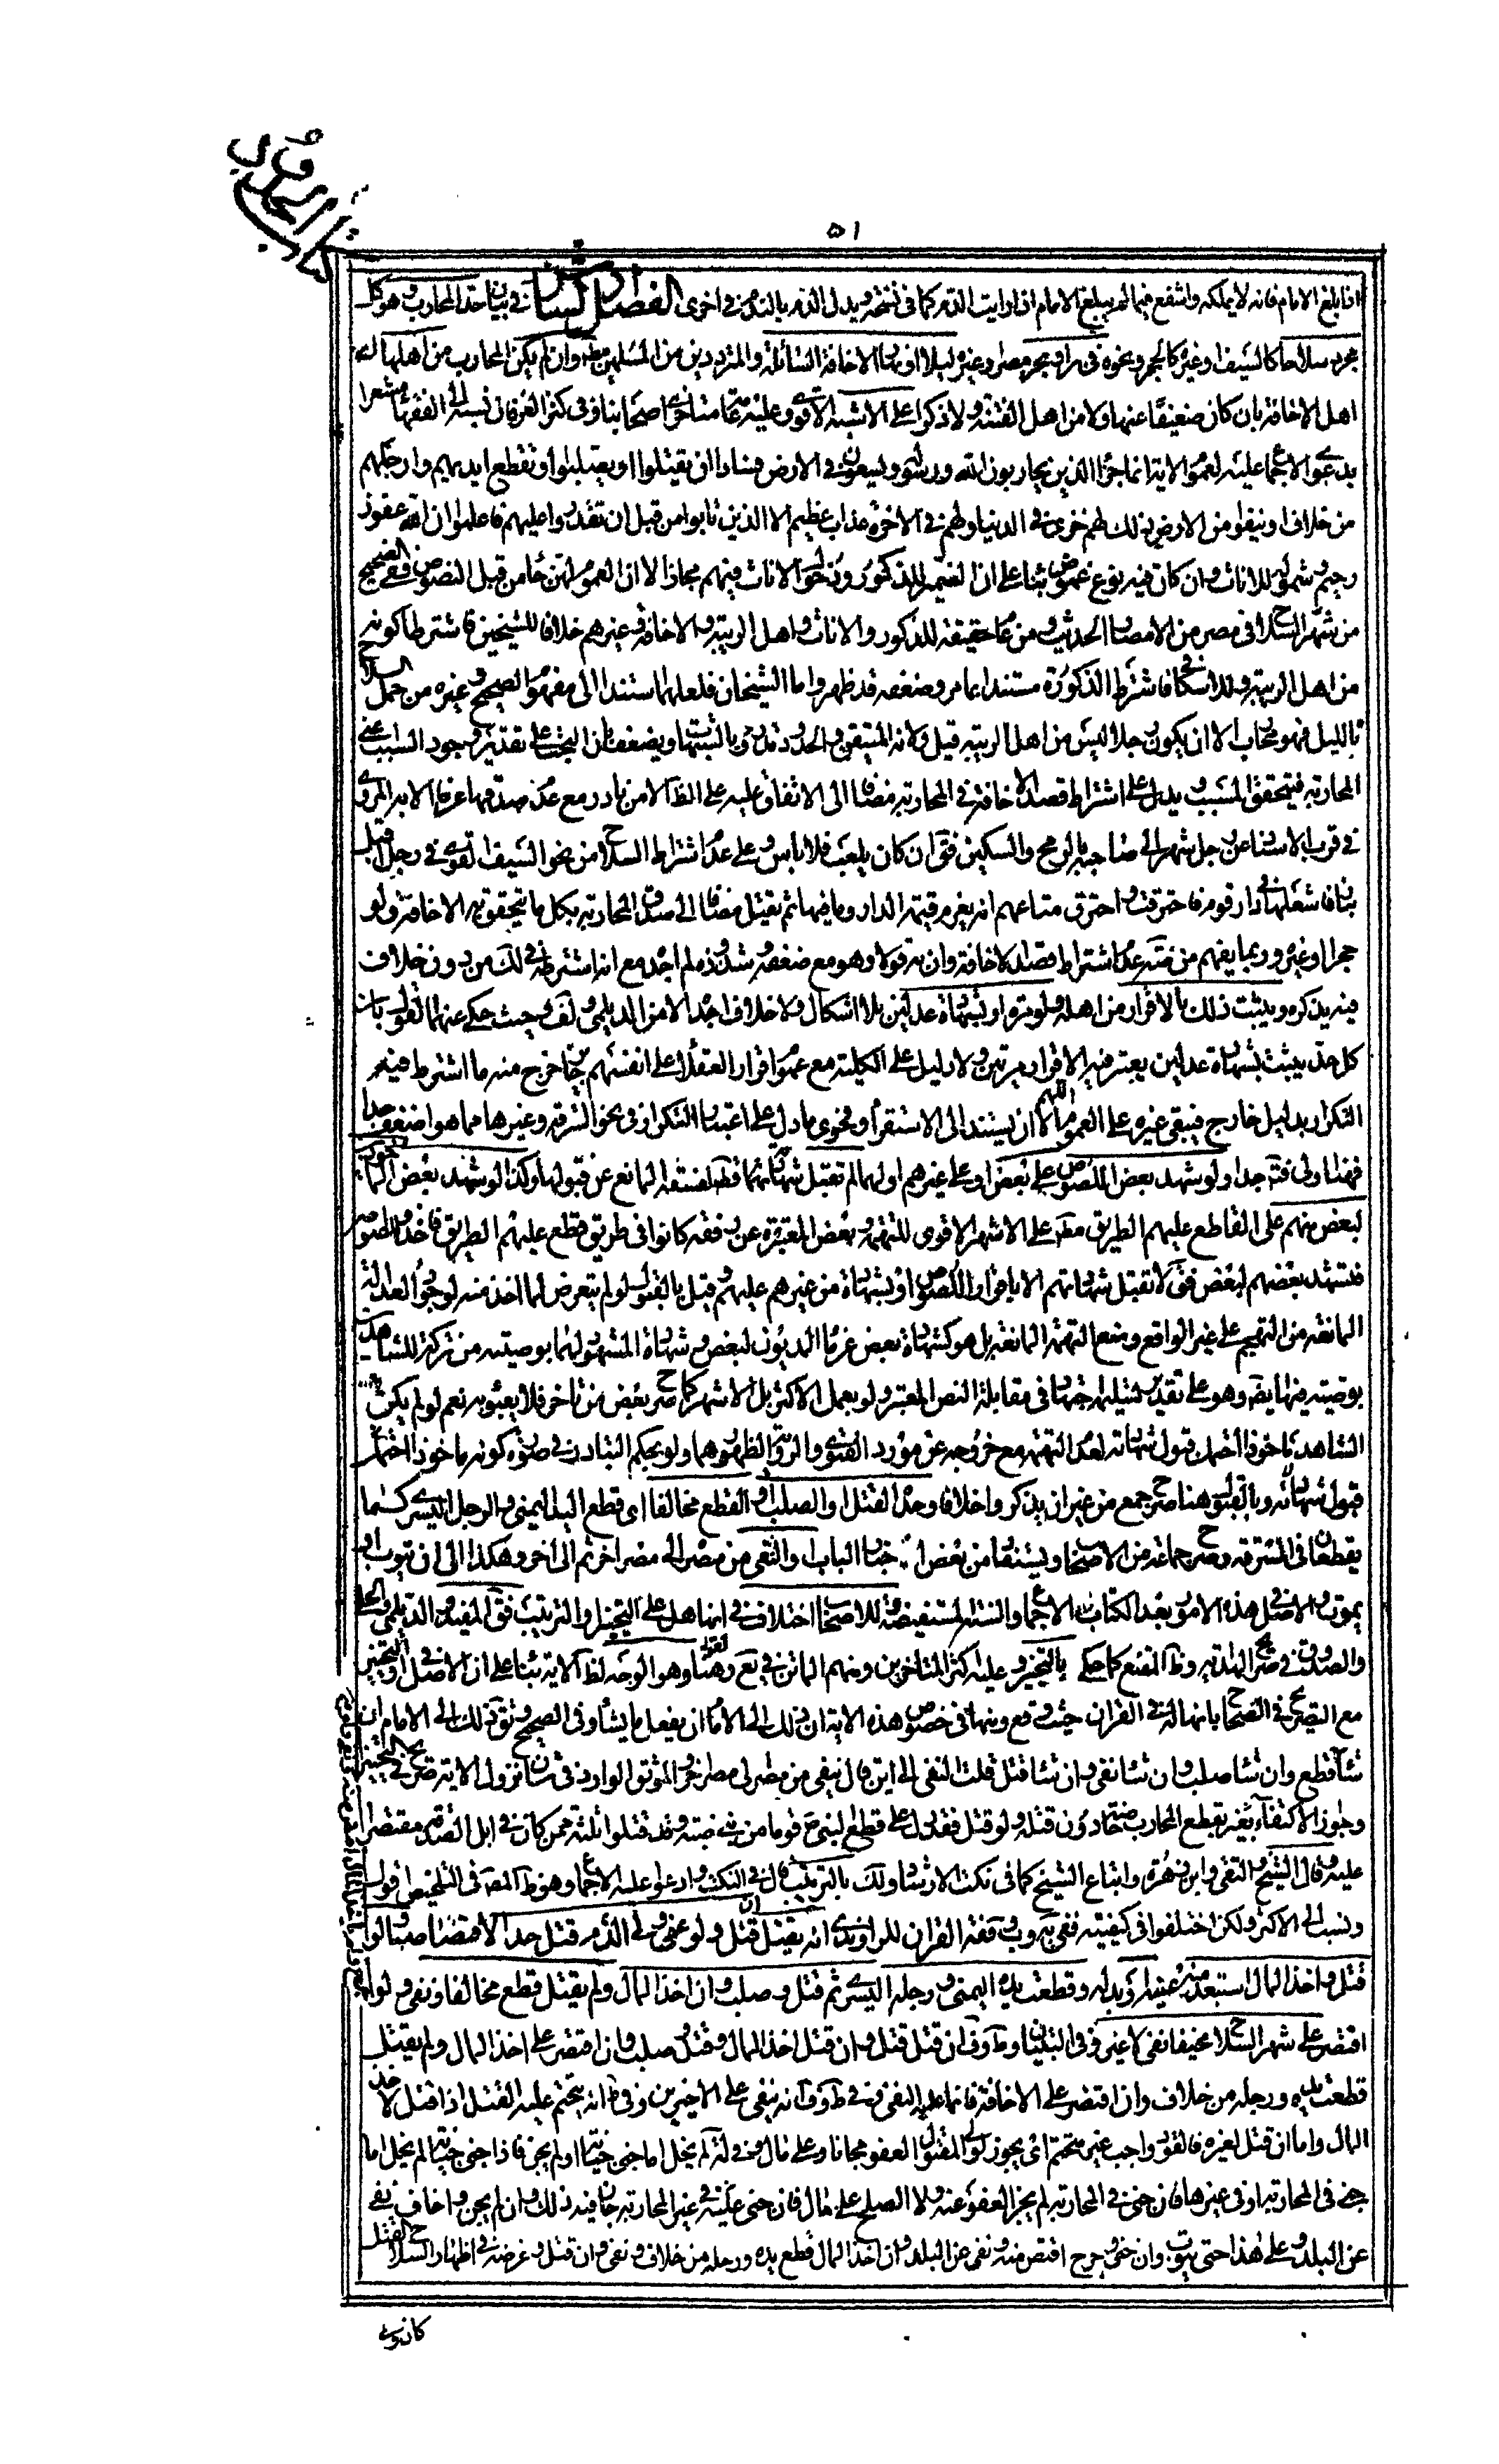 كتاب الحدود
٥١
اذا بلغ الامام فانه لا يملكه واشفع فيما لم يبلغ الامام اذا رايت الندم كما في نسخة وبدل الندم بالندم في اخرى الفصل السادس في بيان حد المحارب وهو كل
مجرد سلاحا كالسيف او غيره كالحجر ونحوه في بر او بحر مصر وغيره ليلا او نهارا لاخافة السائلة والمترددين من المسلمين مط وان لم يكن المحارب من اهلها اى
اهل الاخافة بان كان ضعيفا عنها ولا من اهل الفتنة ولا ذكرا على الاشبه الاقوى وعليه عامة متاخرى اصحابنا وفي كنز العرفان نسبته الى الفقهاء مشعرا
بدعوى الاجماع عليه لعموم الاية انما جزاء الذين يحاربون الله ورسوله ويسعون في الارض فسادا ان يقتلوا او يصلبوا او تقطع ايديهم وارجلهم
من خلاف او ينفوا من الارض ذلك لهم خزى في الدنيا ولهم في الاخرة عذاب عظيم الا الذين تابوا من قبل ان تقدروا عليهم فاعلموا ان الله غفور
رحيم وشموله للاناث وان كان فيه نوع غموض بناء على ان الضمير للذكور ودخول الاناث فيهم مجاز الا ان العموم لهن جاء من قبل النصوص ففى الصحيح
من شهر السلاح في مصر من الامصار الحديث ومن عام حقيقة للذكور والاناث واهل الريبة والاخافة وغيرهم خلافا للشيخين فاشترطا كونه
من اهل الريبة وللاسكافى فاشترط الذكورة مستندا بما مر وضعفه قد ظهر واما الشيخان فلعلهما استندا الى مفهوم الصحيح وغيره من حمل السلاح
بالليل فهو محارب الا ان يكون رجلا ليس من اهل الريبة قيل ولانه المتيقن والحدود تدرء بالشبهات ويضعف بان البحث على تقدير وجود السبب اعنى
المحاربة فيتحقق المسبب ويدل على اشتراط قصد الاخافة في المحاربة مضافا الى الاتفاق عليه على الظ الا من نادر مع عدم صدقها عرفا الا به المروى
في قرب الاسناد عن رجل شهر الى صاحبه بالرمح والسكين فق ان كان يلعب فلا باس وعلى عدم اشتراط السلاح من نحو السيف القوى في رجل اقبل
بنار فاشعلها في دار قوم فاحترقت واحترق متاعهم انه يغرم قيمة الدار وما فيها ثم يقتل مضافا الى صدق المحاربة بكل ما يتحقق به الاخافة ولو
حجرا او غيره وربما يفهم من ضه عدم اشتراط قصد الاخافة وان به قولا وهو مع ضعفه وشذوذه لم اجده مع انه اشترطه في لك من دون خلاف
فيه يذكره ويثبت ذلك بالاقرار من اهله ولو مرة او بشهادة عدلين بلا اشكال ولا خلاف اجده الا من الديلمى ولف حيث حكى عنهما القول بان
كل حد يثبت بشهادة عدلين يعتبر فيه الاقرار مرتين ولا دليل على الكلية مع عموم اقرار العقلاء على انفسهم جايز خرج منه ما اشترط فيه
التكرار بدليل خارج فيبقى غيره على العموم اللهم الا ان يستند الى الاستقراء وفحوى ما دل على اعتبار التكرار في نحو السرقة وغيرها مما هو اضعف جدا
فهنا اولى فته جدا ولو شهد بعض اللصوص على بعض او على غيرهم اولهما لم تقبل شهادتهما قطعا لفسقه المانع عن قبولها وكذا لو شهد بعض الماخوذين
لبعض منهم على القاطع عليهم الطريق مط على الاشهر الاقوى للتهمة وبعض المعتبرة عن رفقة كانوا في طريق قطع عليهم الطريق فاخذوا اللصوص
فشهد بعضهم لبعض فق لا تقبل شهادتهم الا باقرار اللصوص او بشهادة من غيرهم عليهم وقيل بالقبول لو لم يتعرض لما اخذ منه لوجود العدالة
المانعة من التهجم على غير الواقع ومنع التهمة المانعة بل هو كشهادة بعض غرماء المديون لبعض وشهادة المشهود لهما بوصية من تركة للشاهدين
بوصية فيها ايضا وهو على تقدير تسليمه اجتهاد في مقابلة النص المعتبر ولو بعمل الاكثر بل الاشهر كما صرح بعض من تاخر فلا يعبؤ به نعم لو لم يكن
الشاهد ماخوذا احتمل قبول شهادته لعدم التهمة مع خروجه عن مورد الفتوى والرواية لظهورهما ولو بحكم التبادر في صورة كونه ماخوذا احتمل
قبول شهادته وبالقبول هنا صرح جمع من غير ان يذكروا خلافا وحده القتل او الصلب او القطع مخالفا اى قطع اليد اليمنى والرجل اليسرى كما
يقطعان في السرقة وصرح جماعة من الاصحاب ويستفاد من بعض اخبار الباب او النفى من مصر الى مصر اخر ثم الى اخر وهكذا الى ان يتوب او
يموت والاصل في هذه الامور بعد الكتاب الاجماع والسنة المستفيضة وللاصحاب اختلاف في انها هل على التخيير او الترتيب فق المفيد والديلمى والحلى
والصدوق في صريح الهداية وظ المقنع كما حكى بالتخيير وعليه اكثر المتاخرين ومنهم الماتن في يع وهنا لقوله وهو الوجه لظ الاية بناء على ان الاصل في او التخيير
مع التصريح في الصحاح بانها له في القران حيث وقع ومنها في خصوص هذه الاية ان ذلك الى الامام ان يفعل ما يشاء وفي الصحيح والموثق ذلك الى الامام ان
شاء قطع وان شاء صلب وان شاء نفى وان شاء قتل قلت النفى الى اين قال ينفى من مصر الى مصر اخر والموثق الوارد في شان نزول الاية صريح في التخيير
عليه وقال الشيخ والتقى وابن زهرة واتباع الشيخ كما في نكت الارشاد ولك بالترتيب قال في النكت وادعوا عليه الاجماع وهو ظ المص في التلخيص اقول
ونسب الى الاكثر ولكن اختلفوا في كيفيته ففي يه ويب وفقه القران للراوندى انه يقتل ان قتل ولو عفى ولى الدم قتل حدا لا قصاصا وقالوا
قتل واخذ المال استعيد منه عينه او بدله وقطعت يده اليمنى ورجله اليسرى ثم قتل وصلب وان اخذ المال ولم يقتل قطع مخالفا ونفى ولو
اقتصر على شهر السلاح مخيفا نفى لا غير وفى التبيان وط وف ان قتل قتل وان قتل واخذ المال قتل وصلب وان اقتصر على اخذ المال ولم يقتل
قطعت يده ورجله من خلاف وان اقتصر على الاخافة فانما عليه النفى وفى ط وف انه ينفى على الاخيرين وفى ط انه يتحتم عليه القتل اذا قتل لاخذ
المال واما ان قتل لغيره فالقود واجب غير متحتم اى يجوز لولى المقتول العفو مجانا وعلى مال وفى لة لم يخل اما جنى جناية او لم يجن فاذا جنى جناية لم يخل اما
جنى في المحاربة او في غيرها فان جنى في المحاربة لم يجز العفو عنه ولا الصلح على مال فان جنى في غير المحاربة جاز فيه ذلك وان لم يجن واخاف نفى
عن البلد وعلى هذا حتى يتوب وان جنى وجرح اقتص منه ونفى عن البلد وان اخذ المال قطع يده ورجله من خلاف ونفى وان قتل وغرضه في اظهار السلاح القتل
كان ولى